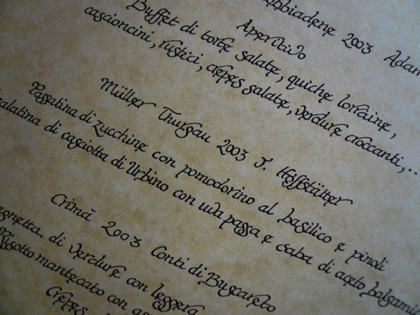 obbiadene 2003 Adam
Aperitivo
Buffet di torte salate, quiche lorraine,
cascioncini, rustici, crêpes salate, verdure croccanti,...
Müller Thurgau 2003 J. Hoffstätter
Passatina di zucchine con pomodorino al basilico e pinoli
alatina di caciotta di Urbino con uva passa e saba di aceto balsami
Crimà 2003 Conti di Buscareto
agnetta di verdure con leggera
Risotto mantecato con as
Crêpes